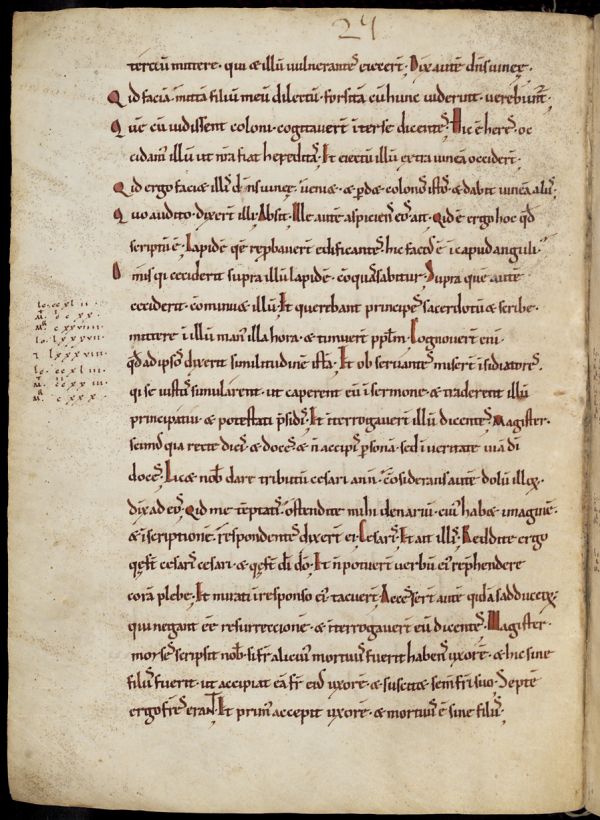 24
tertiū mittere · qui & illū uulnerantes eiecert̄ · Dix̄ autē dn̄s uineȩ ·
Qid faciā · mittā filiū meū dilectū · forsitā cū hunc uiderint · verebunt̄ ·
Que cū uidissent coloni · cogitavert̄ inter se dicentes · Hic ē heres · oc
cidam illū ut nr̄a fiat hereditas · Et eiectū illū extra uineā occidert̄ ·
Qid ergo faciet illis dn̄s uineȩ · veniet · & perdet colonos istos & dabit uineā aliis ·
Quo audito · dixert̄ illi · Absit · Ille autē aspiciens eos ait · Qid ē ergo hoc qd̄
scriptū ē · Lapidē quē reprobavert̄ edificantes · hic factus ē in capud anguli ·
Omis qui ceciderit supra illū lapidē · conquasabitur · Supra quē autē
ceciderit · cōminuet illū · Et querebant principes sacerdotū & scribe ·
mittere in illū man illa hora · & timuert̄ pplm̄ · Cognovert̄ eni
qd̄ ad ipsos dixerit similitudinē istā · Et ob servantes misert̄ insidiatores ·
qi se iustos simularent · ut caperent eū in sermone · & traderent illū
principatui · & potestati p̄sidis · Et interrogavert̄ illū dicentes · Magister ·
scim qia recte dicis & doces · & n̄ accipis p̄sonā · sed in veritate viā dī
doces · Licet nob dare tributū cesari ann̄ · Cōsiderans autē dolū illoꝝ ·
dix̄ ad eos · Qid me tēptatis · ostendite mihi denariū · cuius habet imaginē ·
& inscriptionē · respondentes dixert̄ ei · Cesaris · Et ait illis · Reddite ergo
qȩ st̄ cesaris cesari · & qȩ st̄ dī dō · Et n̄ potuert̄ verbū eius reprhendere
corā plebe · Et mirati in responso eius tacuert̄ · Accessert̄ autē quidā sadduceoꝝ ·
qui negant eē resurrecctionē · & interrogavert̄ eū dicentes · Magister ·
moyses scripsit nob · si fr̄ alicuius mortuus fuerit habens uxorē · & hic sine
filiis fuerit · ut accipiat eā fr̄ eius uxorē · & suscitet semē fri suo · Septē
ergo frēs erant · Et primus accepit uxorē · & mortuus ē sine filiis ·